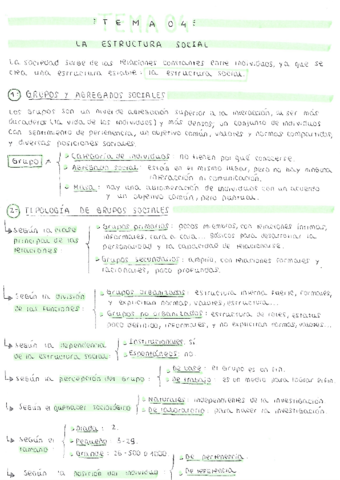 TEMA 04
LA ESTRUCTURA SOCIAL
La sociedad surge de las relaciones constantes entre individuos, ya que se
crea una estructura estable: la estructura social.
1. GRUPOS Y AGREGADOS SOCIALES
Los grupos son un nivel de agregación superior a la interacción, al ser más
duraderos (la vida de los individuos) y más densos, un conjunto de individuos
con sentimiento de pertenencia, un objetivo común, valores y normas compartidos,
y diversas posiciones sociales.
Grupo ≠
Categoría de individuos: no tienen por qué conocerse.
Agregación social: están en el mismo lugar, pero no hay ninguna
interacción ni comunicación.
Masa: hay una aglomeración de individuos con un acuerdo
y un objetivo común, pero puntual.
2. TIPOLOGÍA DE GRUPOS SOCIALES
Según la
principal de las
relaciones
Grupos primarios: pocos miembros, con relaciones íntimas,
informales, cara a cara... básicos para desarrollar la
personalidad y la capacidad de relacionarse.
Grupos secundarios: amplio, con relaciones formales y
racionales, poco profundas.
Según la división
de las funciones:
Grupos organizados: estructura interna fuerte, formales,
y explicitan normas, valores, estructura...
Grupos no organizados: estructura de roles, estatus
poco definido, informales, y no explicitan normas, valores...
Según la dependencia
de la estructura social:
Institucionales: sí
Espontáneos: no
Según la percepción del grupo:
De base: el grupo es un fin.
De trabajo: es un medio para lograr el fin.
Según el quehacer sociológico
Naturales: independientes de la investigación
De laboratorio: para hacer la investigación
Según el
tamaño
Díada: 2.
Pequeño: 3-
Grande:
Según la posición del individuo:
De pertenencia
De referencia